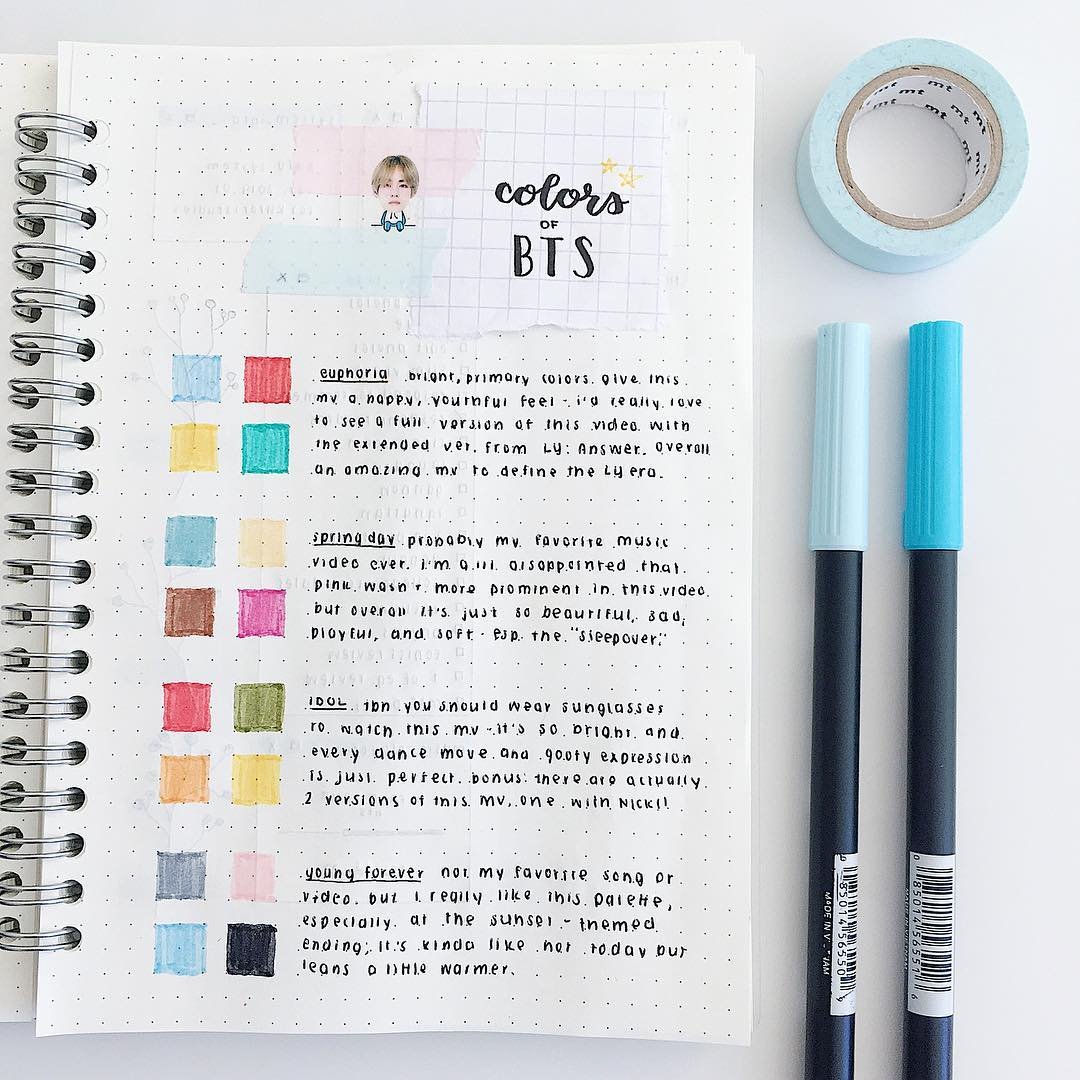 colors
OF
BTS
euphoria bright, primary colors give this
mv a happy, youthful feel - i'd really love
to see a full version of this video with
the extended ver. from LY: Answer. overall
an amazing mv to define the LY era.
spring day probably my favorite music
video ever. i'm a lil disappointed that
pink wasn't more prominent in this video
but overall it's just so beautiful, sad,
playful, and soft - esp. the "sleepover."
IDOL tbh you should wear sunglasses
to watch this mv - it's so bright and
every dance move and goofy expression
is just perfect. bonus: there are actually
2 versions of this mv, one with Nicki!
young forever not my favorite song or
video but i really like this palette,
especially at the sunset - themed
ending; it's kinda like not today but
leans a little warmer.
mt mt mt mt
MADE IN
8 50145 6550
0 850145 6551 6